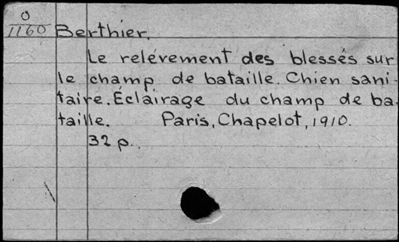 O
1160 Berthier.
Le relévement des blessés sur
le champ de bataille. Chien sani-
taire. Éclairage du champ de ba-
taille. Paris, Chapelot, 1910.
32 p.